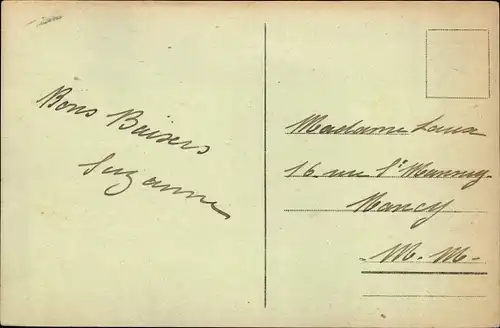 Bons Baisers
Suzanne
Madame Laux
16 rue
Nancy
M. M.